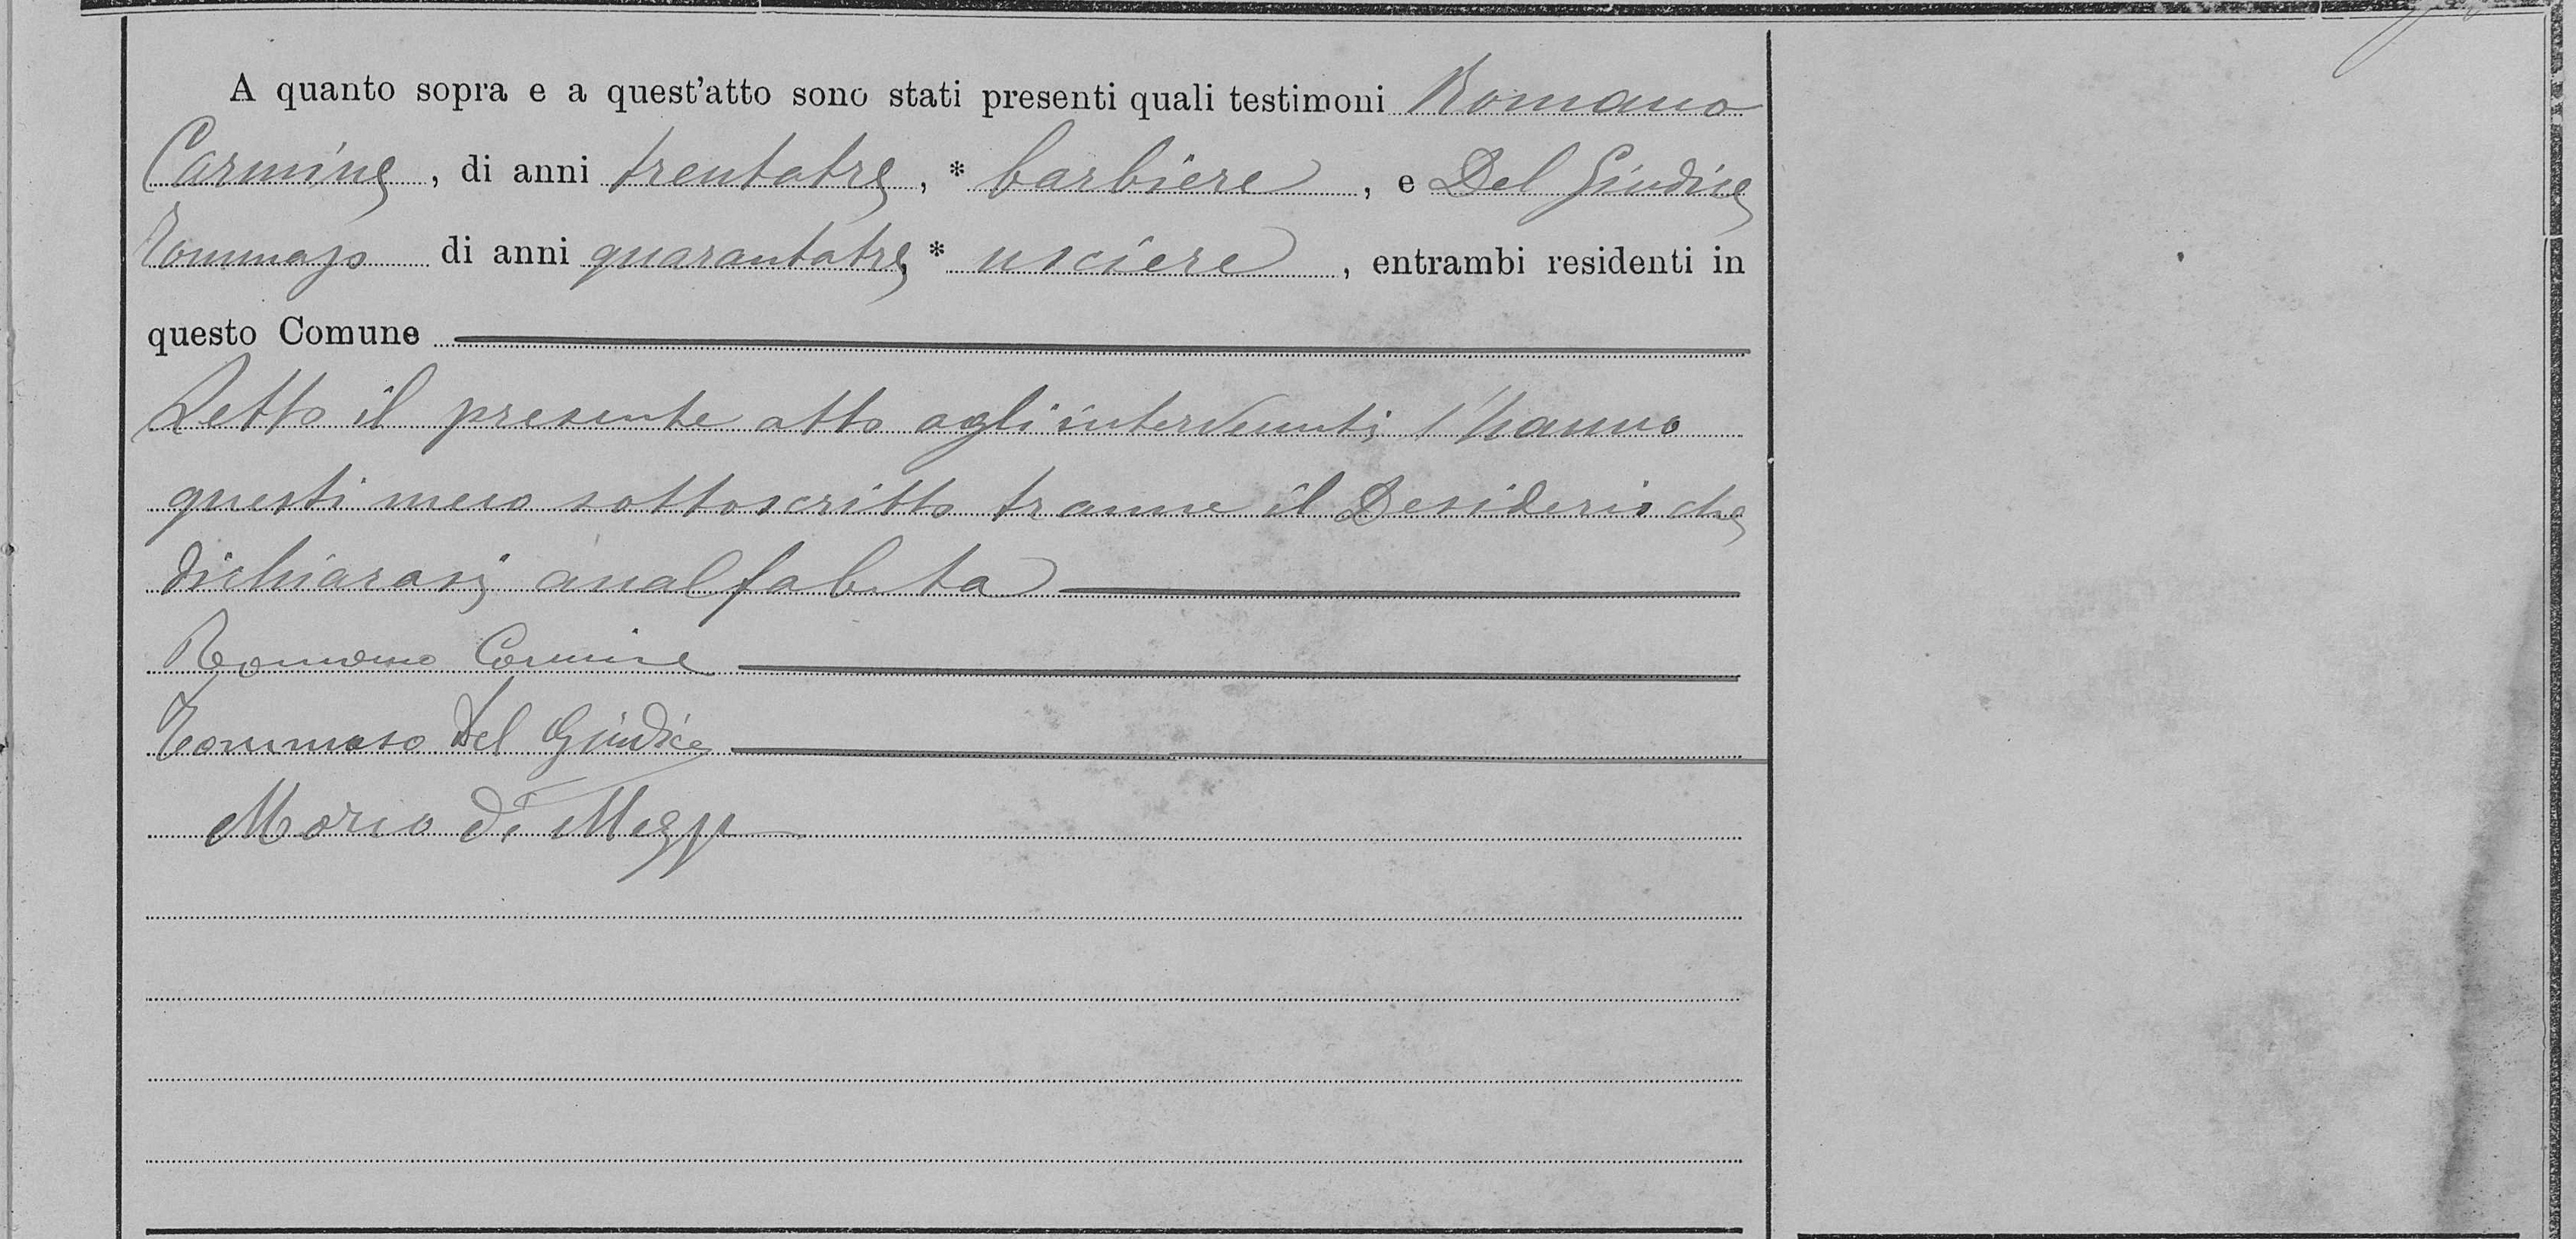 A quanto sopra e a quest'atto sono stati presenti quali testimoni Romano
Carmine, di anni trentatre, * barbiere, e Del Giudice
Tommaso di anni quarantatre * usciere, entrambi residenti in
questo Comune
Letto il presente atto agli intervenuti, l'hanno
questi meco sottoscritto tranne il Desiderio che
dichiarasi analfabeta
Romano Carmine
Tommaso Del Giudice
Mario di